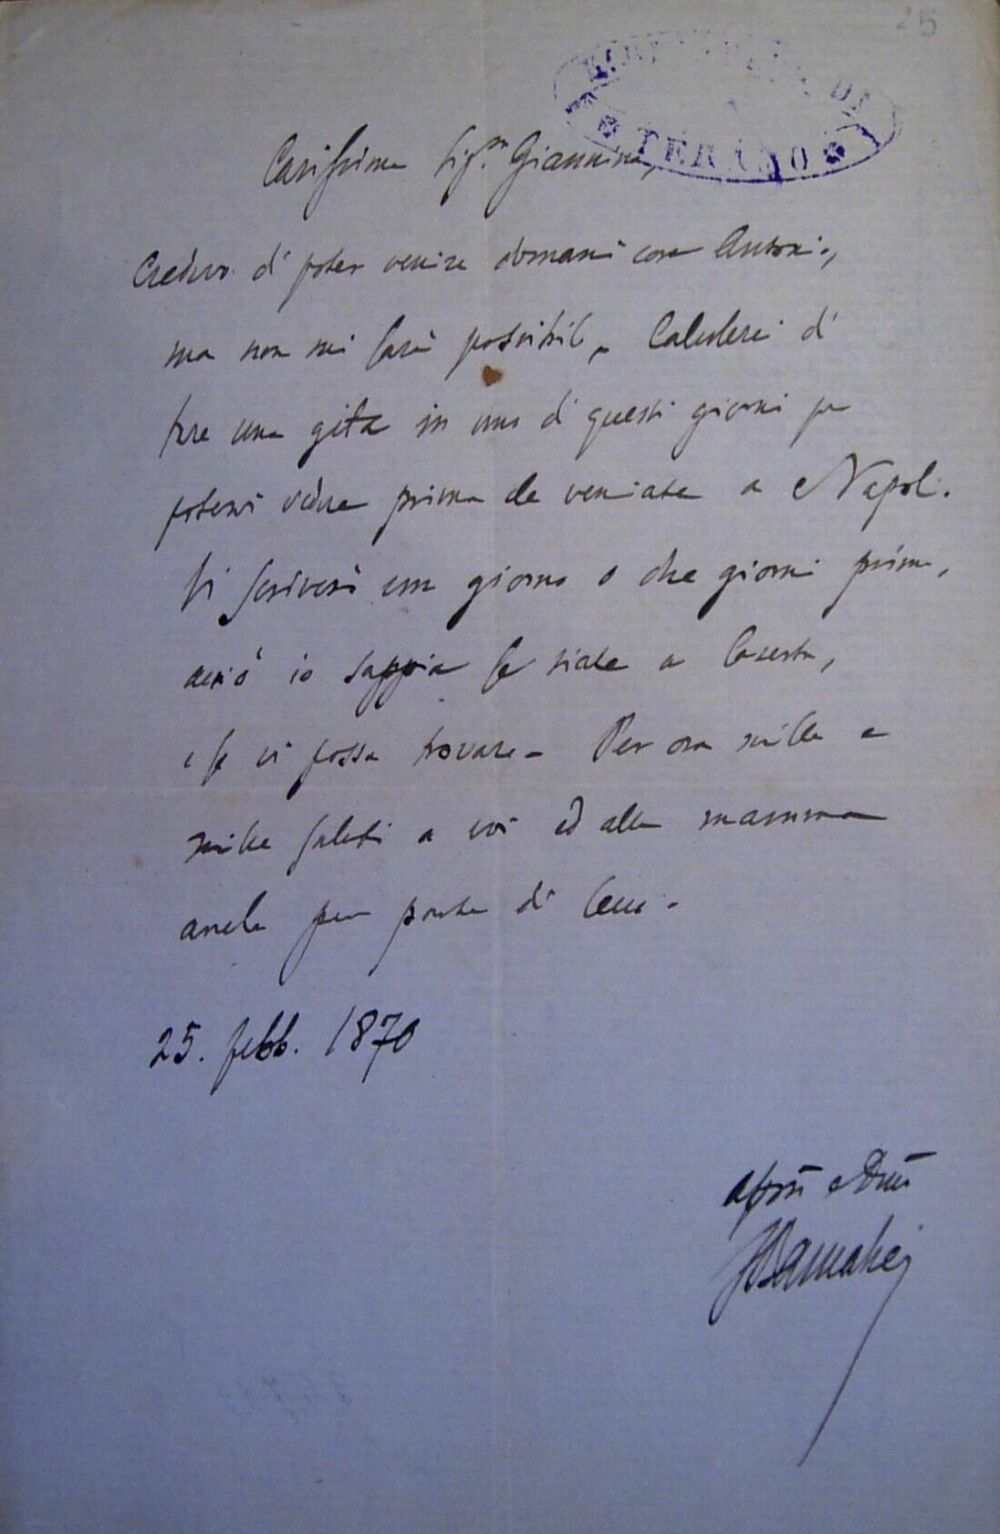 25
DI
TERAMO
Carissima Sig.ra Giannina,
Credevo di poter venire domani con Antonio,
ma non mi sarà possibile. Calcolerei di
fare una gita in uno di questi giorni per
potervi vedere prima che veniate a Napoli.
Vi scriverò un giorno o due giorni prima,
acciò io sappia se siate a Caserta,
e se vi possa trovare. Per ora mille e
mille saluti a voi ed alla mamma
anche per parte di
25. febb. 1870